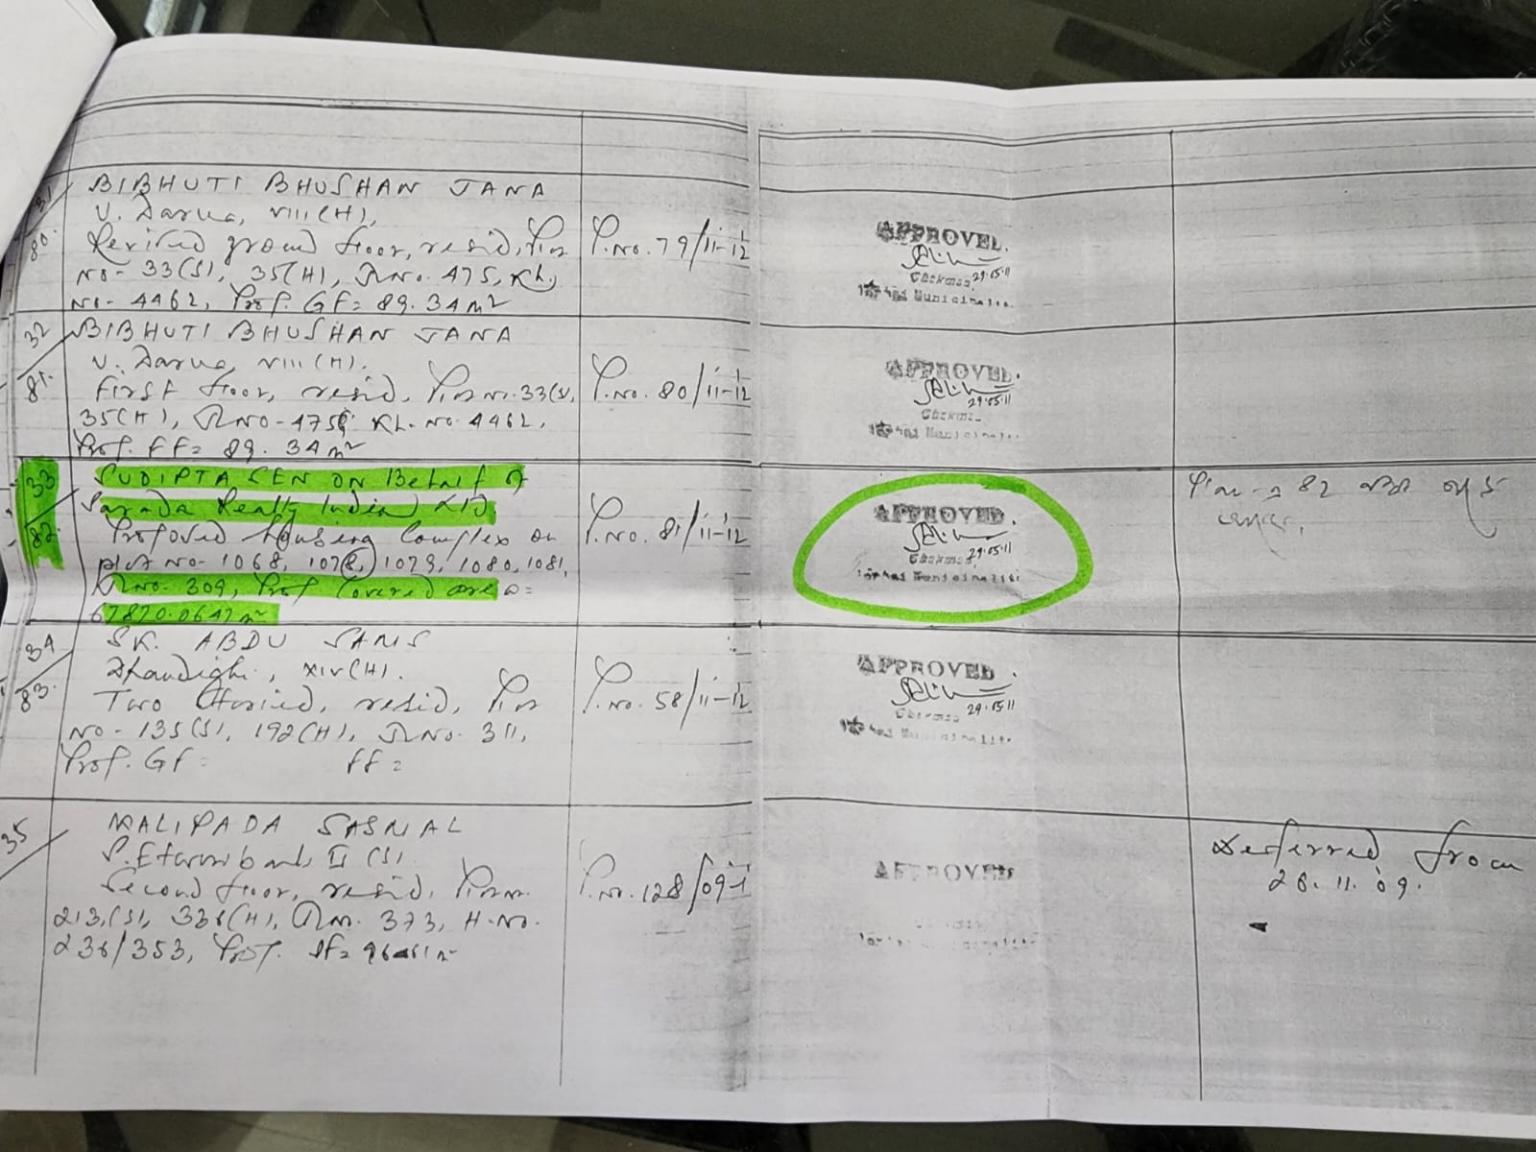 31/80. BIBHUTI BHUSHAN JANA
V. Darua, VIII(H),
Revised ground floor, resid, Pln
No- 33(S), 35(H), JLNo. 475, Kh.
No- 4462, Prof. GF= 89.34m²
P.No. 79/11-12
APPROVED.
29.05.11
Municipalit
32/81. BIBHUTI BHUSHAN JANA
V. Darua, VIII(H).
First floor, resid,
35(H), JLNO-475 Kh. No. 4462,
Prof. FF= 89.34m²
P.No. 80/11-12
APPROVED.
29.05.11
Municipalit
33/82. SUDIPTA SEN ON Behalf of
Sarada Realty India Ltd.
Proposed Housing Complex on
plot No- 1068, 1078, 1079, 1080, 1081,
JLNo. 309, Prof Covered area =
67820.0647m²
P.No. 81/11-12
APPROVED.
29.05.11
Municipalit
34/83. SK. ABDU SAMS
XIV(H).
Two Storied, resid,
No- 135(S), 192(H), JLNo. 311,
Prof. GF= FF=
P.No. 58/11-12
APPROVED.
29.05.11
Municipalit
35 KALIPADA SASMAL
II (S)
Second floor, resid,
213(S), 336(H), JLNo. 373, H.No.
236/353, Prof. SF=
P.No. 128/09-1
APPROVED
Deferred from
26.11.09.